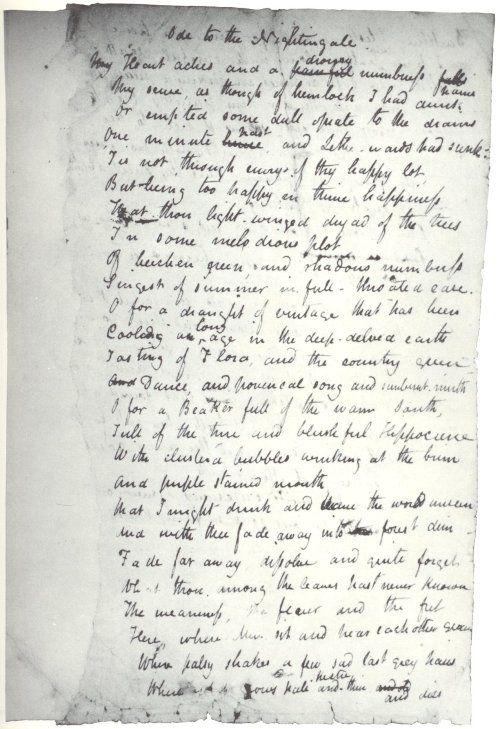 Ode to the Nightingale
drowsy
My Heart aches and a painful numbness falls
pains
My sense, as though of hemlock I had drunk
Or emptied some dull opiate to the drains
past
One minute hence, and Lethe-wards had sunk
Tis not through envy of thy happy lot
But being too happy in thine happiness
That thou light-winged dryad of the trees
In some melodious plot
Of beechen green, and shadows numberless
Singest of summer in full-throated ease.
O for a draught of vintage that has been
long
Cooling an age in the deep-delved earth
Tasting of Flora, and the country green
And Dance, and provencal song and sunburnt mirth
O for a Beaker full of the warm South,
Full of the true and blushful Hippocrene
With cluster'd bubbles winking at the brim
And purple stained mouth
That I might drink and leave the world unseen
And with thee fade away into forest dim –
Fade far away dissolve and quite forget
What thou among the leaves hast never known
The weariness, the fever and the fret
Here, where Men sit and hear each other groan
Where palsy shakes a few sad last grey hairs
Where grows pale and thin and dies